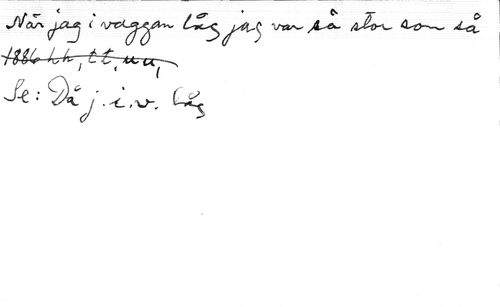 När jag i vaggan låg jag var så stor som så
1886 hh, tt, uu,
Se: Då j. i. v. låg